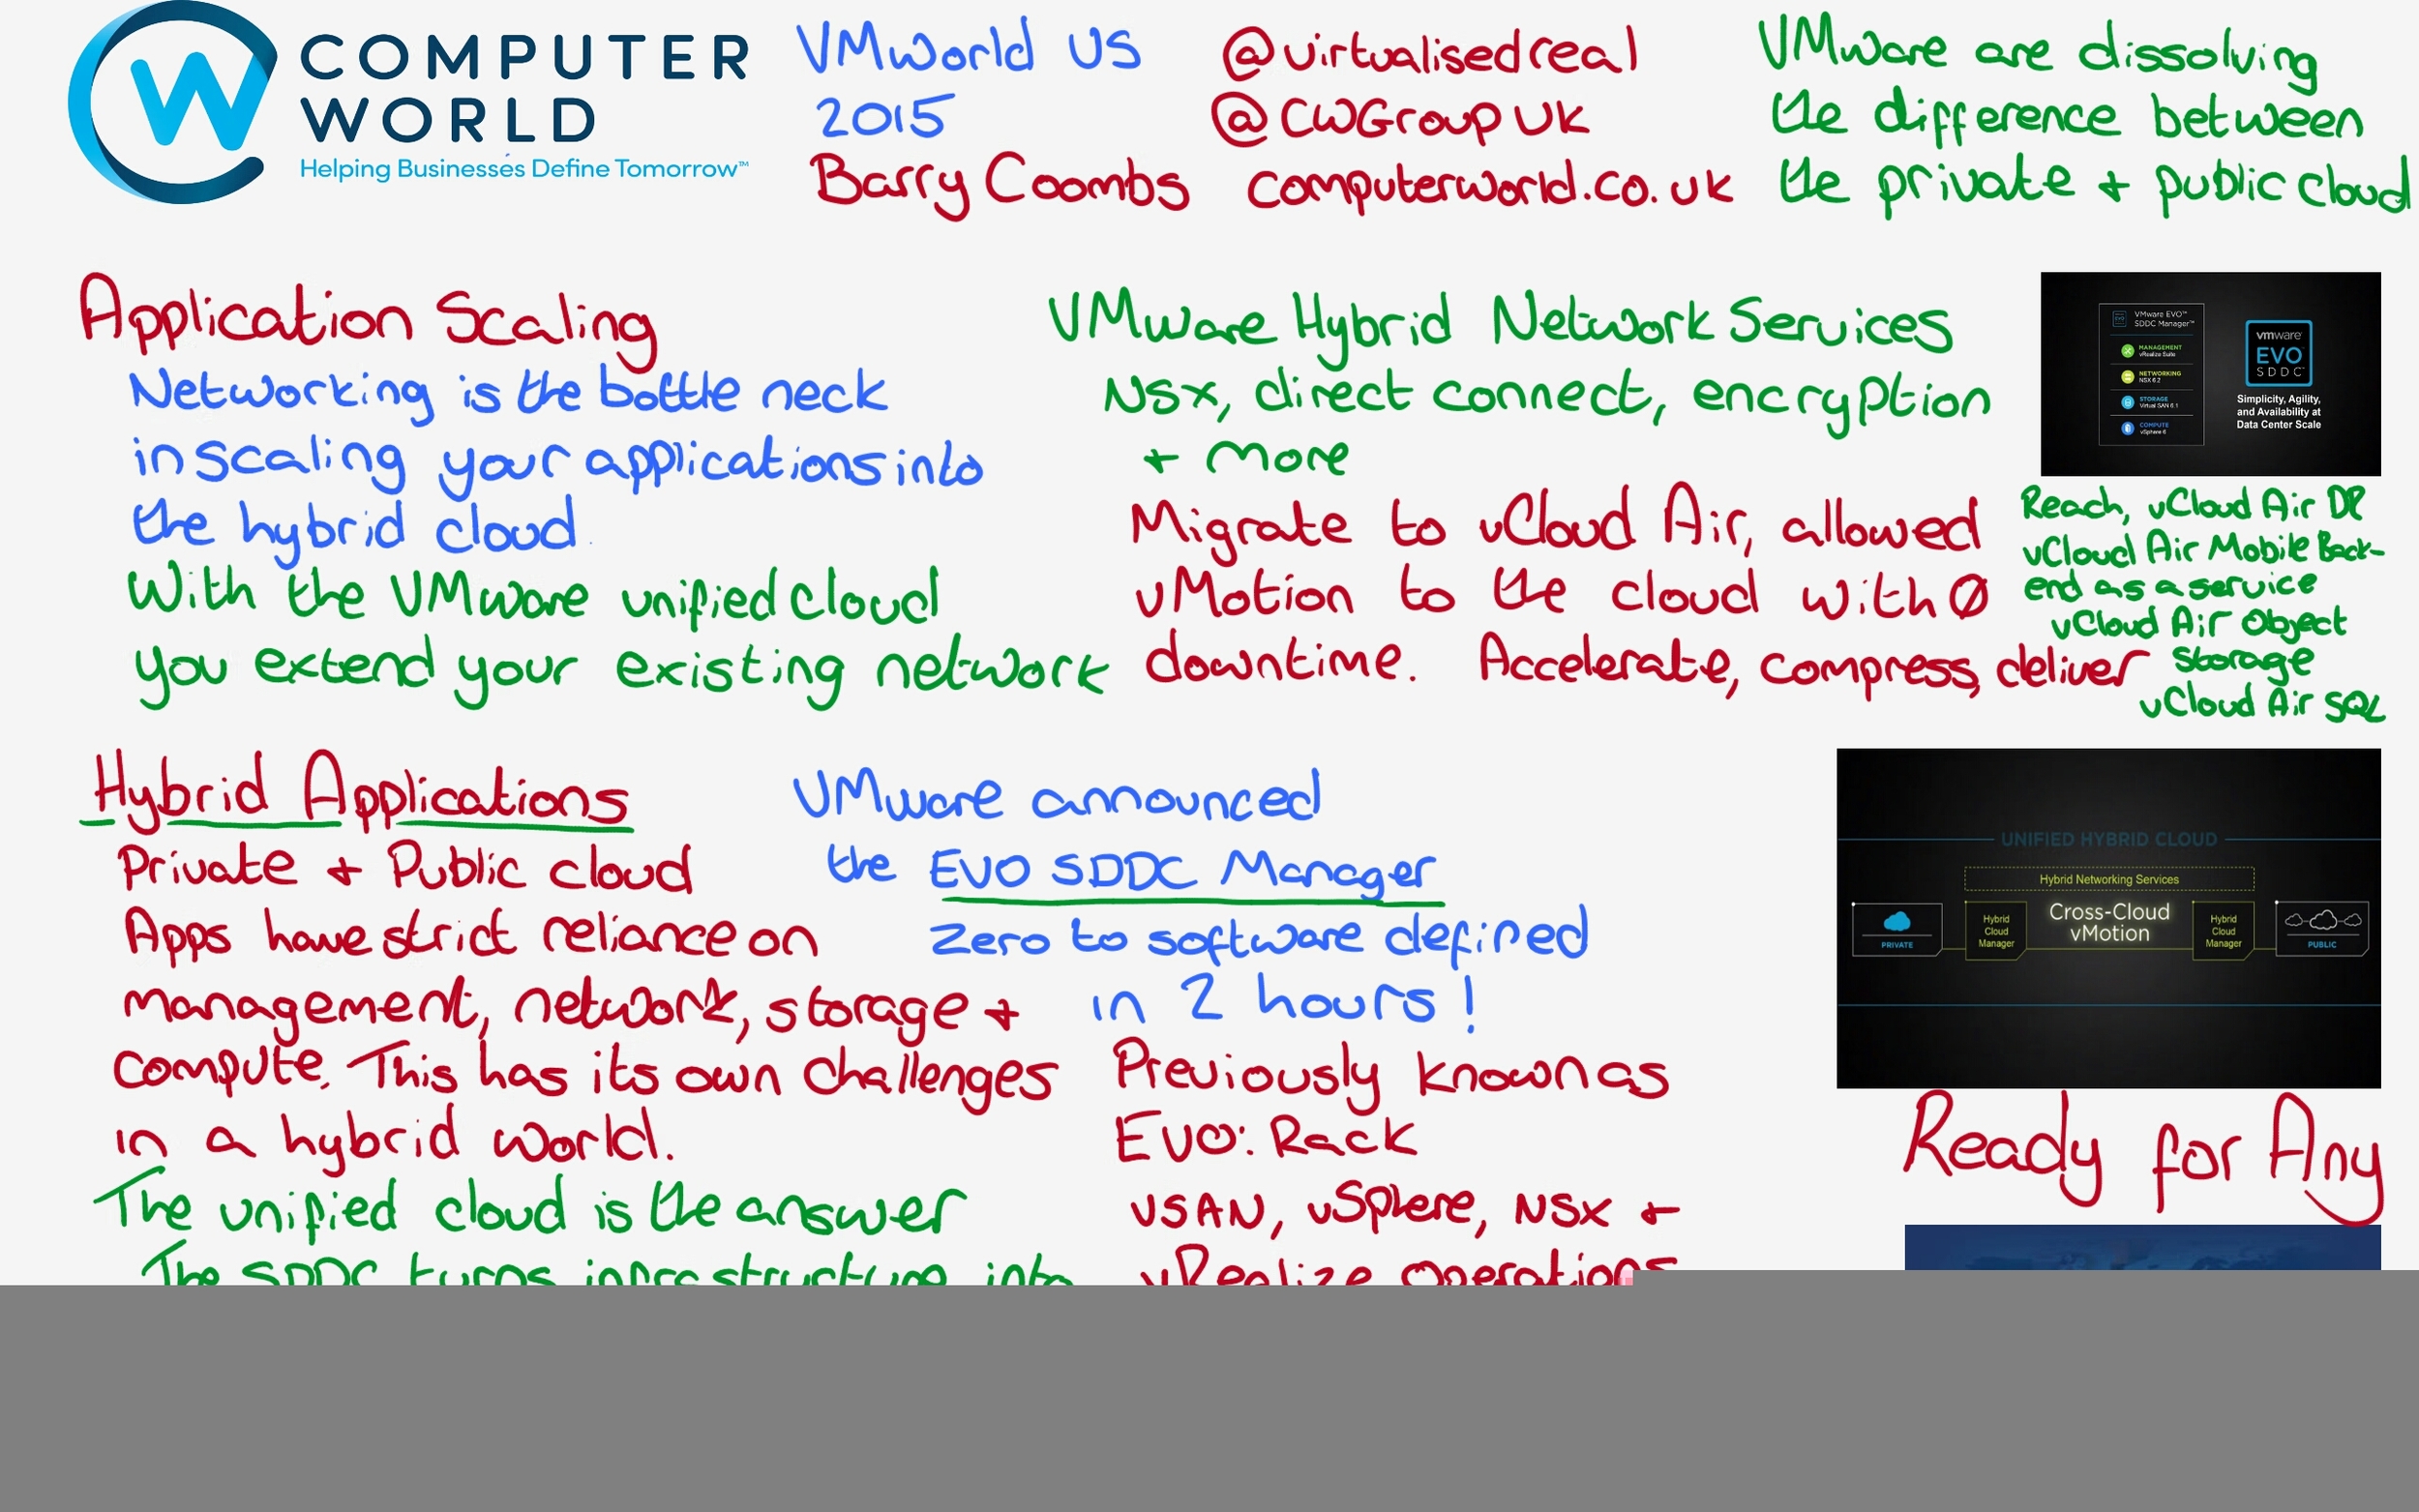 COMPUTER
WORLD
Helping Businesses Define Tomorrow™
VMworld US
2015
Barry Coombs
@virtualisedreal
@CWGroupUK
computerworld.co.uk
VMware are dissolving
the difference between
the private + public cloud
Application Scaling
Networking is the bottle neck
in scaling your applications into
the hybrid cloud.
With the VMware unified cloud
you extend your existing network
VMware Hybrid Network Services
NSX, direct connect, encryption
+ more
Migrate to vCloud Air, allowed
vMotion to the cloud with 0
downtime. Accelerate, compress, deliver
VMware EVO™
SDDC Manager™
MANAGEMENT
vRealize Suite
NETWORKING
NSX 6.2
STORAGE
Virtual SAN 6.1
COMPUTE
vSphere 6
vmware
EVO
SDDC
Simplicity, Agility,
and Availability at
Data Center Scale
Reach, vCloud Air DR
vCloud Air Mobile Back-
end as a service
vCloud Air Object
Storage
vCloud Air SQL
Hybrid Applications
Private + Public cloud
Apps have strict reliance on
management, network, storage +
compute. This has its own challenges
in a hybrid world.
The unified cloud is the answer
The SDDC turns infrastructure into
VMware announced
the EVO SDDC Manager
Zero to software defined
in 2 hours!
Previously known as
EVO: Rack
VSAN, vSphere, NSX +
vRealize Operations
UNIFIED HYBRID CLOUD
Hybrid Networking Services
PRIVATE
Hybrid
Cloud
Manager
Cross-Cloud
vMotion
Hybrid
Cloud
Manager
PUBLIC
Ready for Any